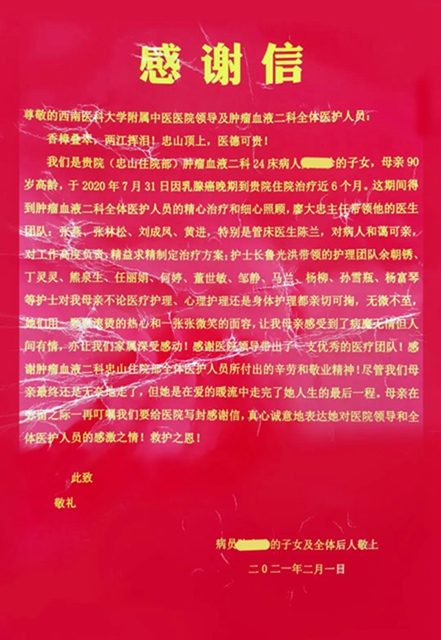 感谢信
尊敬的西南医科大学附属中医医院领导及肿瘤血液二科全体医护人员：
香樟叠翠，两江挥泪！忠山顶上，医德可贵！
我们是贵院（忠山住院部）肿瘤血液二科24床病人的子女，母亲90
岁高龄，于2020年7月31日因乳腺癌晚期到贵院住院治疗近6个月。这期间得
到肿瘤血液二科全体医护人员的精心治疗和细心照顾，廖大忠主任带领他的医生
团队：张燕、张林松、刘成凤、黄进，特别是管床医生陈兰，对病人和蔼可亲，
对工作高度负责，精益求精制定治疗方案；护士长鲁光洪带领的护理团队余朝锈、
丁灵灵、熊泉生、任丽娟、何婷、董世敏、邹静、马兰、杨柳、孙雪瓶、杨富琴
等护士对我母亲不论医疗护理、心理护理还是身体护理都亲切可掬，无微不至，
她们用一颗颗滚烫的热心和一张张微笑的面容，让我母亲感受到了病魔无情但人
间有情，亦让我们家属深受感动！感谢医院领导带出了一支优秀的医疗团队！感
谢肿瘤血液二科忠山住院部全体医护人员所付出的辛劳和敬业精神！尽管我们母
亲最终还是无奈地走了，但她是在爱的暖流中走完了她人生的最后一程。母亲在
弥留之际一再叮嘱我们要给医院写封感谢信，真心诚意地表达她对医院领导和全
体医护人员的感激之情！救护之恩！
此致
敬礼
病员的子女及全体后人敬上
二〇二一年二月一日